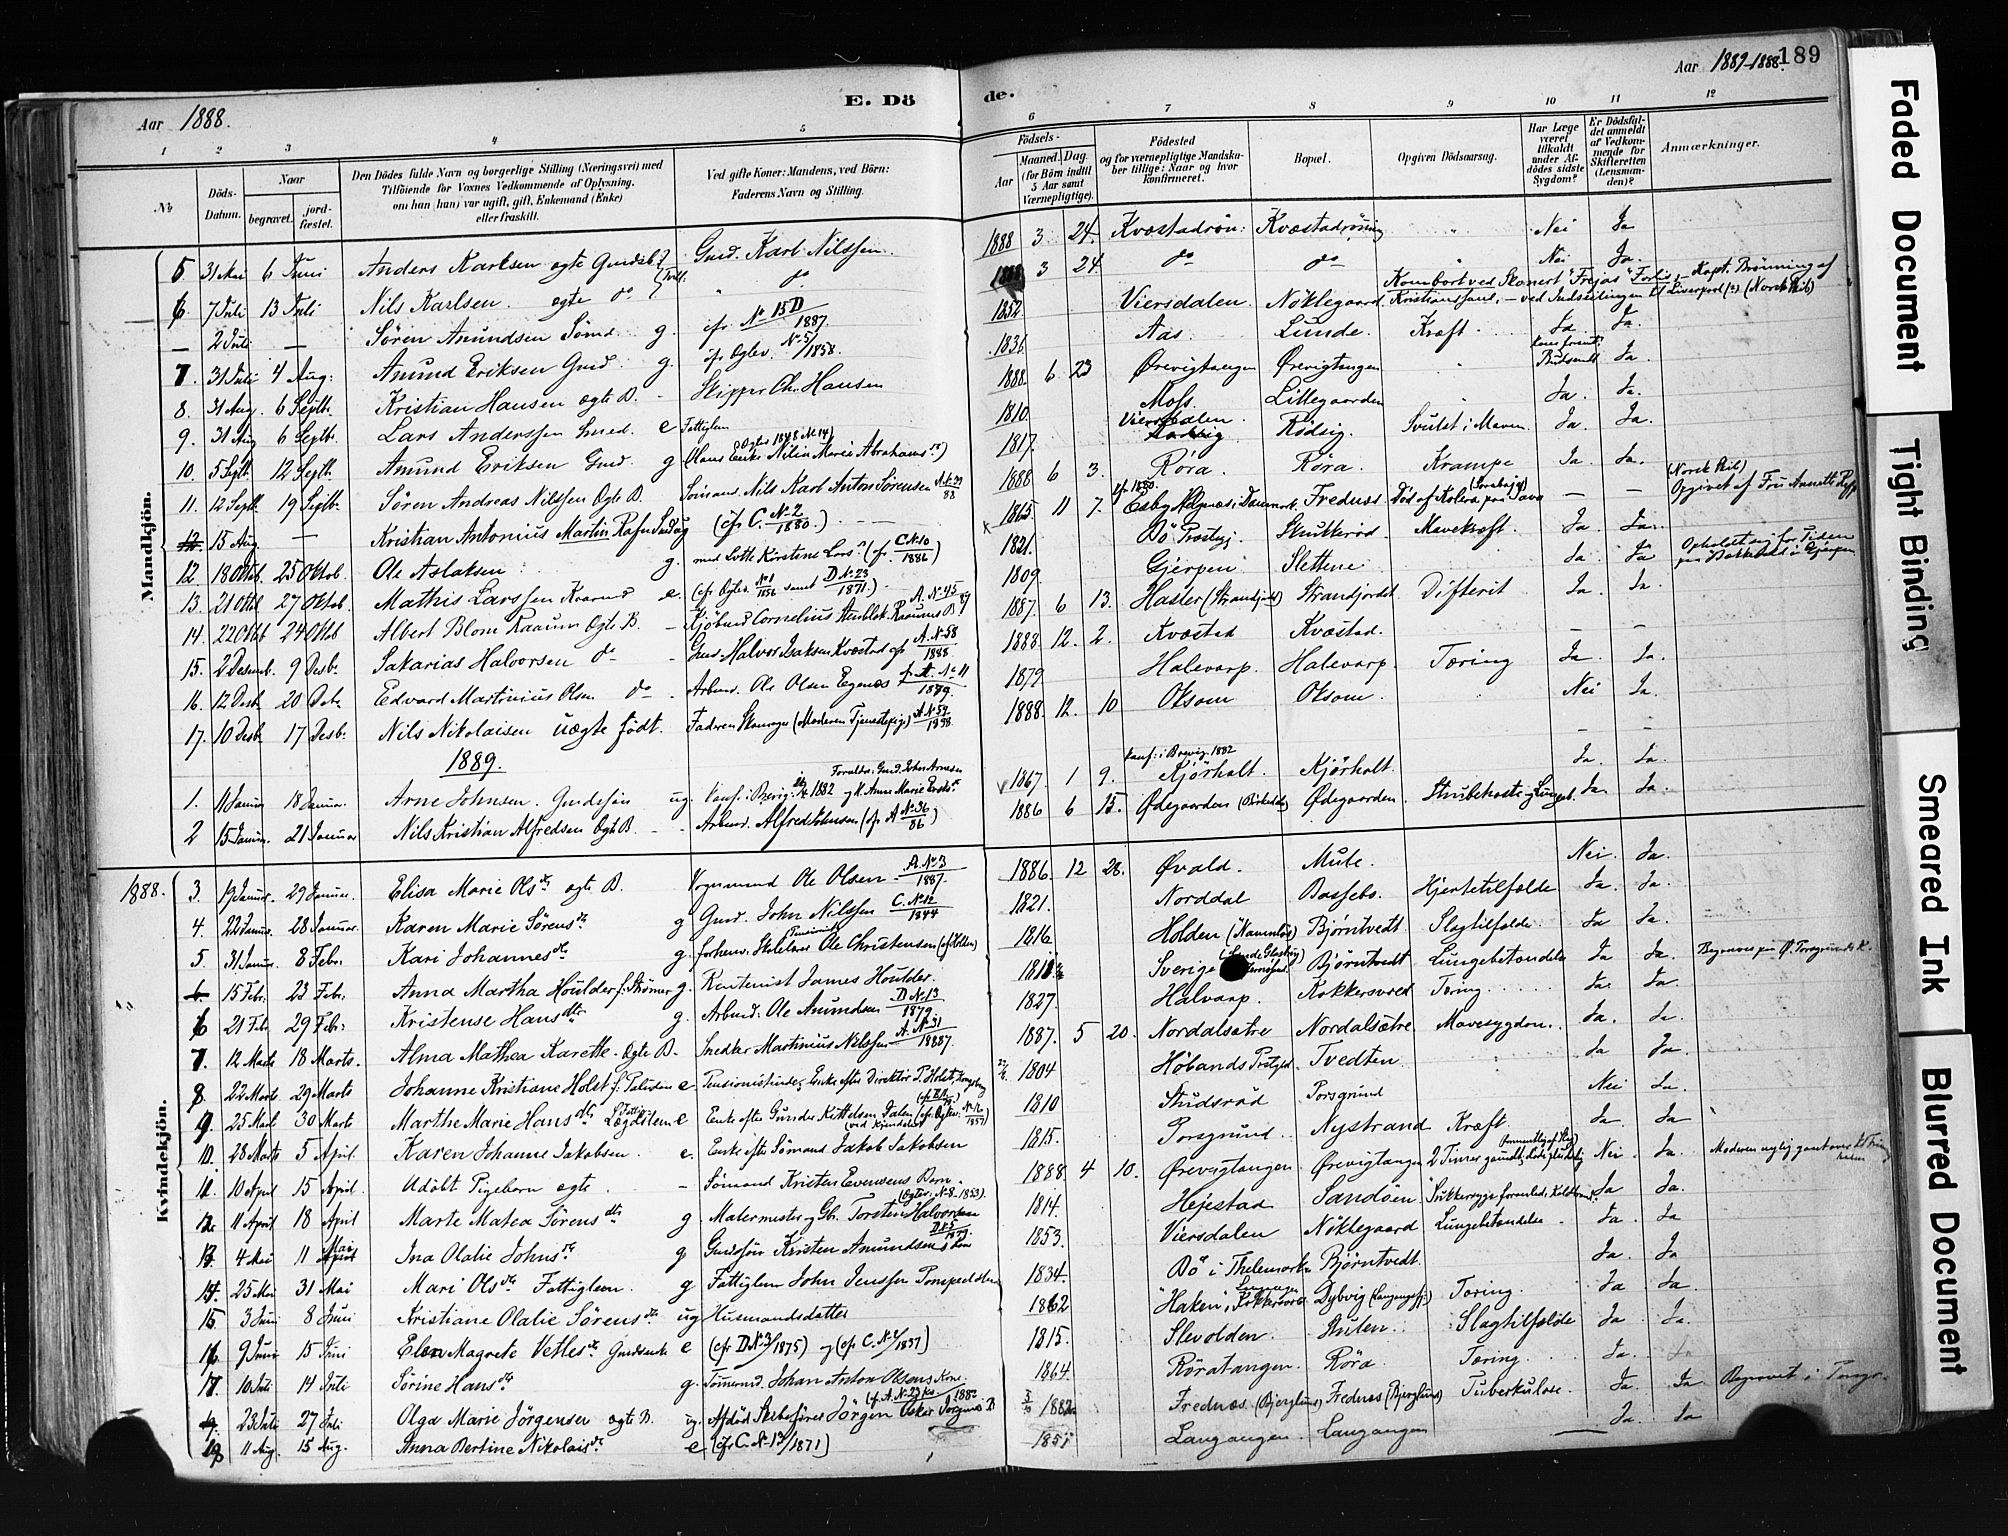 Aar 1888.
E. Döde.
Aar 1889-1888. 189
1 2 3 4 5 6 7 8 9 10 11 12
No
Döds-Datum.
Naar
begravet.
jord-fæstet.
Den Dödes fulde Navn og borgerlige Stilling (Næringsvei) med
Tilföiende for Voxnes Vedkommende af Oplysning,
om han (hun) var ugift, gift, Enkemand (Enke)
eller fraskilt.
Ved gifte Koner: Mandens, ved Börn:
Faderens Navn og Stilling.
Födsels-
Aar
Maaned. Dag.
(for Börn indtil
5 Aar samt
Værnepligtige).
Födested
og for værnepligtige Mandska-
ber tillige: Naar og hvor
konfirmeret.
Bopæl.
Opgiven Dödsaarsag.
Har Læge
været
tilkaldt
under Af-
dödes sidste
Sygdom?
Er Dödsfal-
det anmeldt
af Vedkom-
mende for
Skifteretten
(Lensman-
den)?
Anmærkninger.
Mandkjön.
5. 31 Mai 6 Juni Anders Karlsen ægte Gmd. Karl Nilssen. 1888 3 24. Kvæstadrøn: Kvæstadrøning Nei Ja
6. 7 Juli 13 Juli Nils Karlsen. ægte do do 3 24 do do Nei Ja.
— 2 Juli — Søren Amundsen Sømd. g. cfr No 15 D 1887. 1852 Viersdalen. Nøklegaard Kristianssund, - ved Indseilingen til Liverpool (?) (Norsk Skib)
7. 31 Juli 4 Aug: Amund Eriksen Gmd. g. cfr Ægtev. No 5/1858. 1836 Aas Lunde. Kræft Ja. Ja.
8. 31 Aug. 6 Septb. Kristian Hansen ægte B. - Skipper Chr. Hansen 1888. 6 23 Ørevigtangen Ørevigtangen Ja.
9. 31 Aug 6 Septbr. Lars Anderssen e Fattiglem 1810. Moss. Lillegaarden Ja. Ja.
10. 5 Septb. 12 Septb. Amund Eriksen Gmd. g (Ægtev 1848 No 14) 1817. Viersdalen Rødsig. Svulst i Maven. Ja. Ja.
11. 12 Septb 19 Septbr. Søren Andreas Nilssen Ægte B. Sømand. Nils Karl Anton Sørensen A No 39 88 1888 6 3. Røra. Røra. Krampe Ja. Ja.
12. 15 Aug. — Kristian Antonius Martin (cfr C. No 2 1880.) 1865 11 7. i Danmark. Frednæs Død af Kolera paa Java — — (Norsk Skib) Opgivet af Fru Annette
12. 18 Oktb. 25 Oktob Ole Aslaksen g. (cfr C No 10 1886) 1821. Bø Prestgj. Skrukkerød Mavekræft. Ja. Ja.
13. 21 Oktb 27 Oktob. Mathis Larssen e. (cfr Ægtev. No 1 1856 samt D No 23 1871) 1809 Gjerpen Slettene Ja Ja
14. 22 Oktb 24 Oktob Albert Blom Raaum Ægte B. - Kjøbmd Cornelius Raaums B A. No 45 87 1887. 6 13. Hasler (Strandjordet) Strandjordet Difterit Ja. Ja
15. 2 Desemb. 9 Desb. Sakarias Halvorsen do - Gmd. Halvor Isaksen Kvæstad cfr A. No 58 1888 1888. 12. 2. Kvæstad Kvæstad. - -
16. 12 Desb. 20 Desb. Edvard Martinius Olsen do - Arbmd. Ole Olsen No 11 1879. 1879 Halevarp. Halevarp. Tæring Ja. Ja.
17. 10 Desb. 17 Desb. Nils Nikolaisen uægte født. Faderen (Moderen Tjenestepige) A No 59 1888. 1888. 12. 10 Oksom Oksom. Nei Ja.
1889.
1. 11 Januar 18 Januar. Arne Johnsen. Gmdsøn ug. Konf. i Brevig 1882 Forældre: Gmd. John Arnesen 1867. 1 9. Konf: i Brevig 1882 Kjørholt. Kjørholt. Ja. Ja.
2 15 Januar. 21 Januar Nils Kristian Alfredsen Ægte B. - - Arbmd. Alfred Johnsen (cfr A No 36 86) 1886 6 15. Ødegaarden Ødegaarden. Strubehoste Ja. Ja.
Kvindekjön.
1888. 3. 19 Januar. 29 Januar. Elisa Marie Olsdtr ægte B. Vognmand Ole Olsen A. No 3 1887. 1886. 12 28. Øvald. Mule. Nei. Ja.
4. 22 Januar. 28 Januar. Karen Marie Sørensdtr g Gmd. John Nilssen C. No 12 1844 1821. Norddal Bassebo. Hjertetilfælde Ja. Ja.
5. 31 Januar. 8 Febr. Kari Johannesdtr g. forhenv. Skolelærer Ole Christensen 1816 Holden Bjørntvedt Slagtilfælde. Ja Ja.
6. 15 Febr. 23 Febr. Anna Martha Houlder f. Strømer g. Rentenist James Houlder. Sverige Bjørntvedt Lungebetændelse Ja Ja. Begraves paa Ø. Porsgrunds K.
6 21 Febr. 29 Febr. Kristense Hansdtr g. Arbmd. Ole Amundsen D No 13 1879. 1827. Halvarp. Kokkersvold Tæring Ja. Ja.
7. 12 Marts 18 Marts. Alma Mathea Karette. Ægte B. Snedker Martinius Nilssen A. No 31 1887. 1887. 5 20. Nordalsætre Nordalsætre Mavesygdom. Ja. Ja.
8. 22 Marts 29 Marts Johanne Kristiane Holst f. Paludan e. Enke efter Direktør P. Holst, Kongsberg 1804 Høbands Prstgjd Tvedten. Ja Ja.
9. 25 Marts 30 Marts Marthe Marie Hansdtr Lægdslem e Enke efter Gunder Kittelsen 1810 Studsrød Porsgrund Nei Ja.
10. 28 Marts 5 April Karen Johanne Jakobsen. e. Enke efter Sømand Jakob Jakobsen 1815. Porsgrund. Nystrand Kræft Ja. Ja
11. 10 April 15 April. Udøbt Pigebarn ægte. - Sømand Kristen Evensens Barn. 1888. 4 10. Ørevigtangen Ørevigtangen 2 Timer gammelt Nei. Ja.
12. 11 April 18 April Marte Matea Sørensdtr g Malermester Torsten Halvorsen (Ægtev. No 8-1853). 1814. Hejestad Sandøen Ja Ja.
13. 4 Mai 11 Mai Ina Olalie Johnsdtr g Gmdsøn Kristen Amundsens Kone 1853. Viersdalen Nøklegaard Lungebetændelse. Ja. Ja
14. 25 Mai 31 Mai Mari Olsdtr Fattiglem. g Fattiglem John Jenssen 1834. Bø i Thelemarken Bjørntvedt Ja. Ja
15 3 Juni 8 Juni Kristiane Olalie Sørensdtr ug Husmandsdatter 1862 "Haken", Kokkersvold Dybvig (Langangsfj.) Tæring. Ja Ja.
16 9 Juni 15 Juni Elen Magrete Vetlesdtr Gmdsenke e (cfr D No 3/1875) og (cfr C. No 4/1837) 1815. Slevolden. Stulen. Slagtilfælde Ja Ja.
17 10 Juli 14 Juli Sørine Hansdtr g. Tømrmd. Johan Anton Olsens Kone. 1864 Røratangen. Røra. Tæring. Ja. Ja
23 Juli 27 Juli Olga Marie Jørgensen ægte B. ug. Afdød Skibsfører Jørgen Oskar Jørgens. B 1882 Frednæs. (Bjerglund) Frednæs (Bjerglund) Tuberkulose. Ja. Ja Begravet i Porsgr.
11 Aug. 15 Aug. Anna Bertine Nikolaisdtr e (cfr C. No 13/1871) 1851 Langangen. Langangen — Ja. Ja
Faded Document
Tight Binding
Smeared Ink
Blurred Document